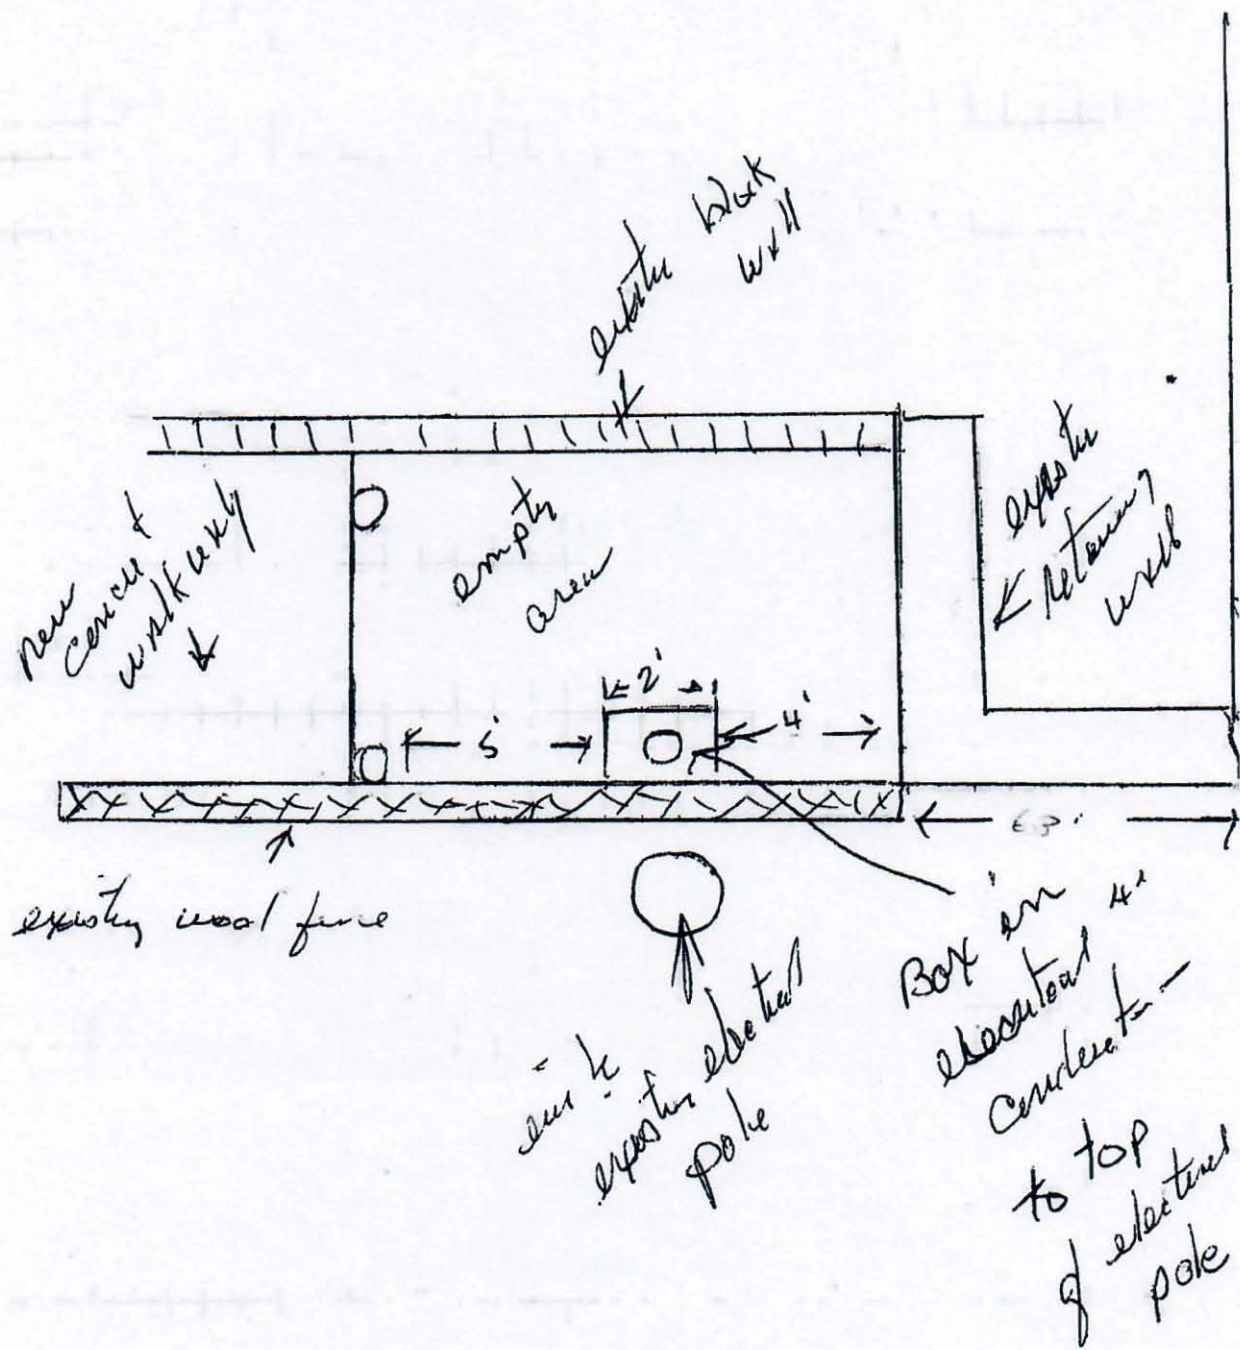 existin block
wall
new
concret
walkway
empty
area
existin
retaining
wall
2'
5'
4'
existing wood fence
existin electrical
pole
Box in
electrical 4"
to top
of electrical
pole